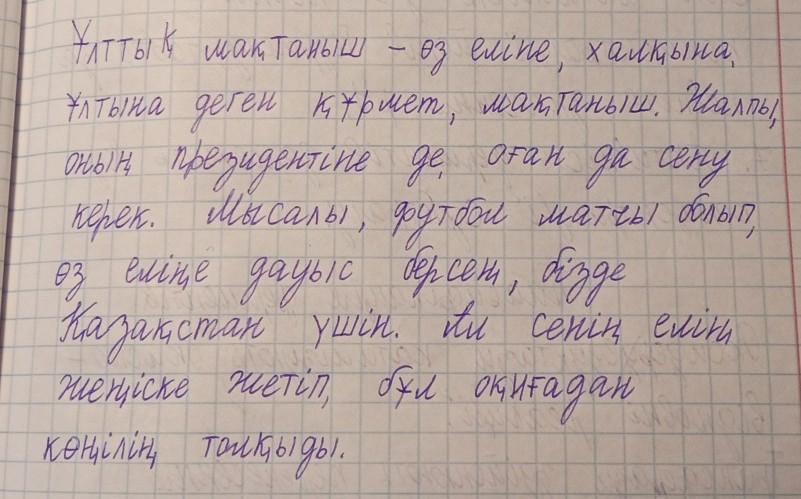 Ұлттық мақтаныш – өз еліне, халқына,
ұлтына деген құрмет, мақтаныш. Жалпы,
оның президентіне де, оған да сену
керек. Мысалы, футбол матчы болып,
өз еліңе дауыс берсең, бізде
Қазақстан үшін. Ал сенің елің
жеңіске жетіп, бұл оқиғадан
көңілің толқыды.